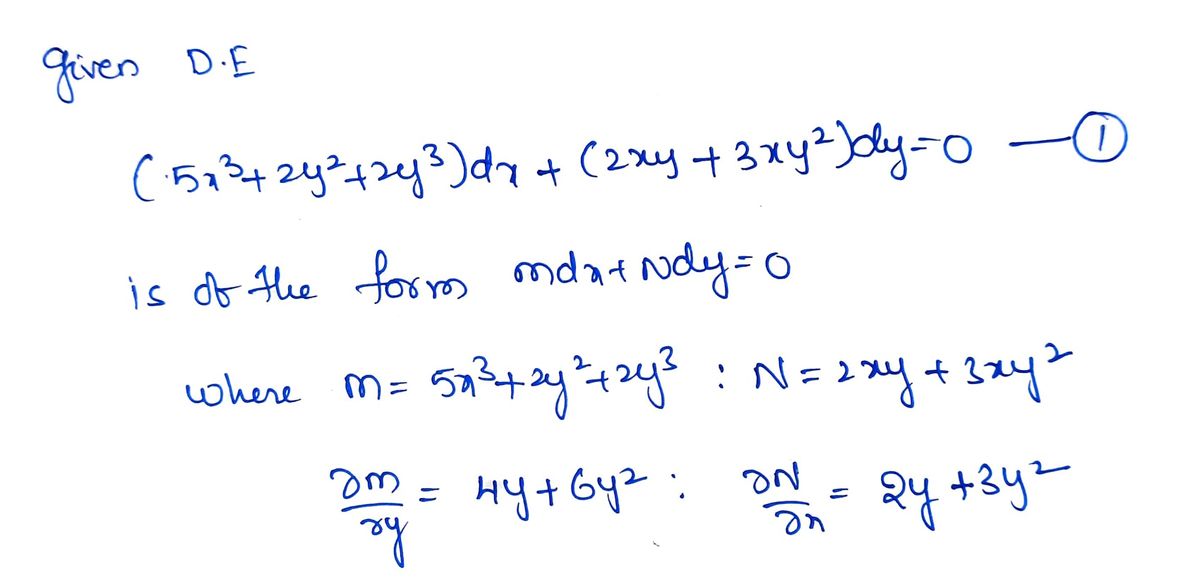 given D.E
(5x³+2y²+2y³)dx + (2xy+3xy²)dy=0 —①
is of the form mdx+Ndy=0
where m= 5x³+2y²+2y³ : N=2xy+3xy²
∂m/∂y = 4y+6y² : ∂N/∂x = 2y+3y²